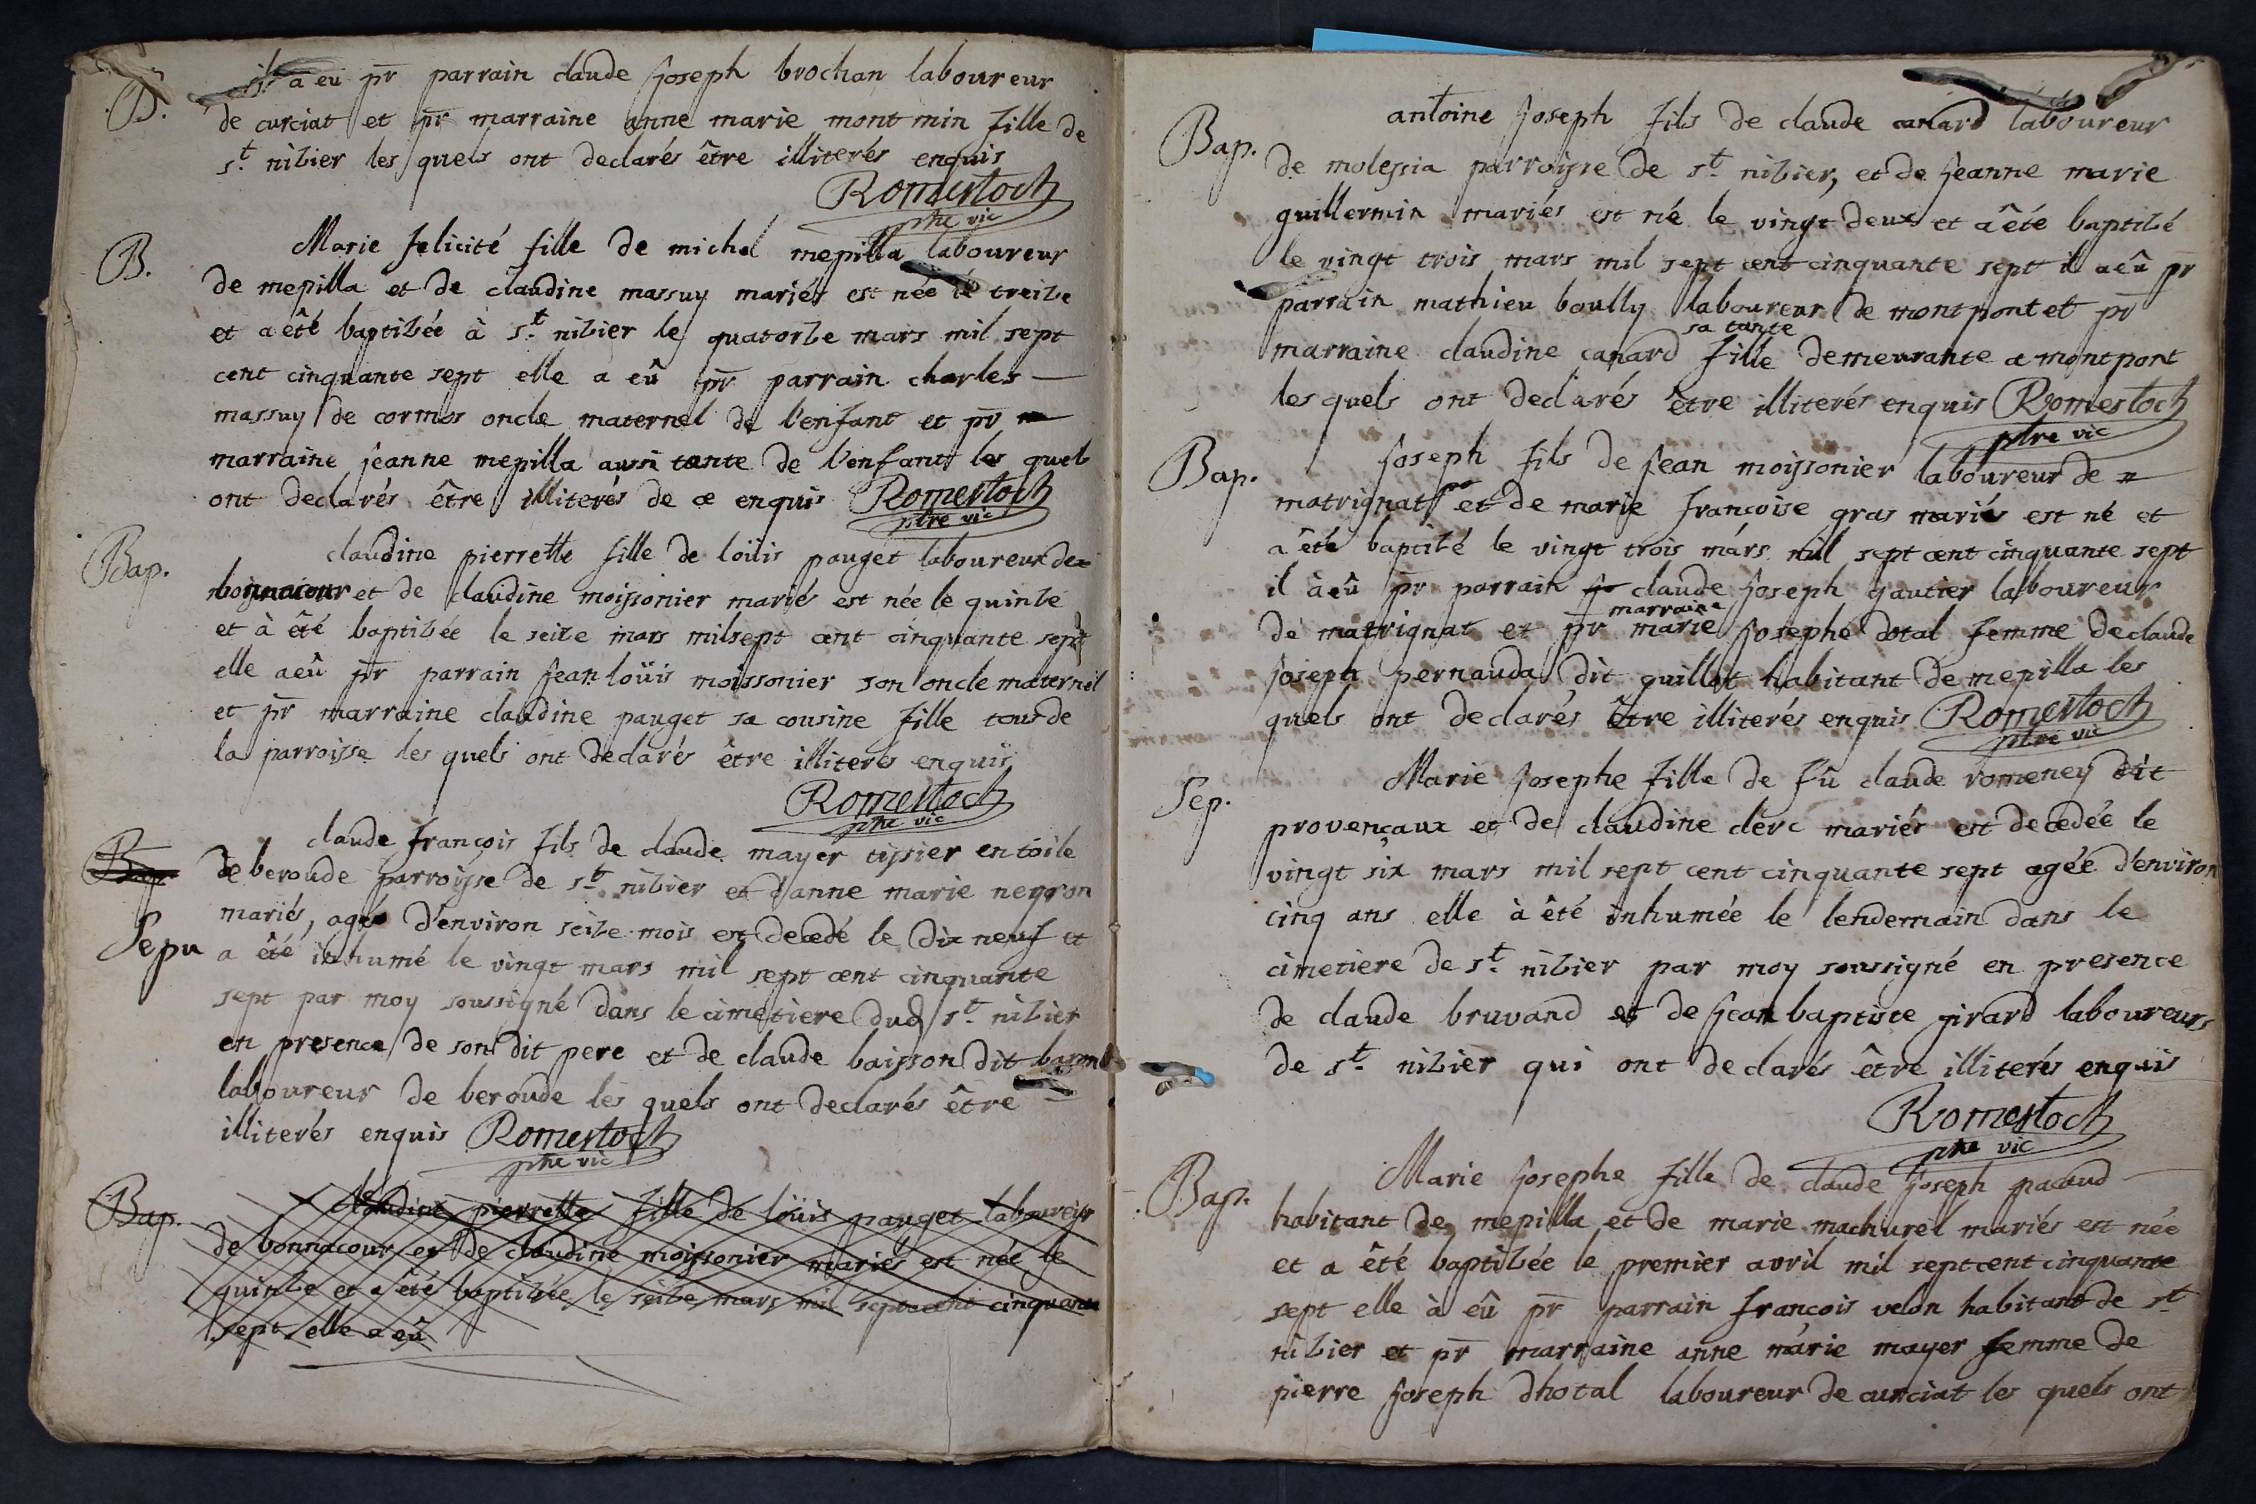 B. il a eû pr parrain claude joseph brochan laboureur
de curciat et pr marraine anne marie montmin fille de
st. nizier les quels ont declarés être illiterés enquis
Romestoch
ptre vic
B. Marie felicité fille de michel mepilla laboureur
de mepilla et de claudine massuy mariés est née le treize
et a êté baptizée à st. nizier le quatorze mars mil sept
cent cinquante sept elle a eû pr parrain charles
massuy de cormos oncle maternel de l'enfant et pr
marraine jeanne mepilla aussi tante de l'enfant les quels
ont declarés être illiterés de ce enquis Romestoch
ptre vic
Bap. claudine pierrette fille de loüis pauget laboureur de
et de claudine moissonier mariés est née le quinze
et à êté baptizée le seize mars mil sept cent cinquante sept
elle a eû pr parrain jean loüis moissonier son oncle maternel
et pr marraine claudine pauget sa cousine fille tous de
la parroisse les quels ont declarés être illiterés enquis
Romestoch
ptre vic
Bap. claude françois fils de claude mayer tissier en toile
de beroude parroisse de st. nizier et d'anne marie neyron
mariés, agé d'environ seize mois est decedé le dix neuf et
Sepu a êté inhumé le vingt mars mil sept cent cinquante
sept par moy soussigné dans le cimetiere dud st. nizier
en presence de son dit pere et de claude baisson dit
laboureur de beroude les quels ont declarés être
illiterés enquis Romestoch
ptre vic
Bap. claudine pierrette fille de loüis pauget laboureur
de bonnacour et de claudine moissonier mariés est née le
quinze et a êté baptizée le seize mars mil sept cent cinquante
sept elle a eû
antoine joseph fils de claude canard laboureur
Bap. de molessia parroisse de st. nizier, et de jeanne marie
guillermin mariés est né le vingt deux et a êté baptizé
le vingt trois mars mil sept cent cinquante sept il a eû pr
parrain mathieu boully laboureur de montpont et pr
sa tante
marraine claudine canard fille demeurante a montpont
les quels ont declarés être illiterés enquis Romestoch
ptre vic
Bap. joseph fils de jean moissonier laboureur de
matrignat et de marie françoise gras mariés est né et
a êté baptizé le vingt trois mars mil sept cent cinquante sept
il à eû pr parrain claude joseph gautier laboureur
marraine
de matrignat et pr marie josephe dotal femme de claude
joseph pernauda dit guillot habitant de mepilla les
quels ont declarés être illiterés enquis Romestoch
ptre vic
Sep. Marie josephe fille de fû claude romeney dit
provençaux et de claudine clerc mariés est decedée le
vingt six mars mil sept cent cinquante sept agée d'environ
cinq ans elle à êté inhumée le lendemain dans le
cimetiere de st. nizier par moy soussigné en presence
de claude bruvand et de jean baptiste girard laboureurs
de st. nizier qui ont declarés être illiterés enquis
Romestoch
ptre vic
Bap. Marie josephe fille de claude joseph pacaud
habitant de mepilla et de marie machurel mariés est née
et a êté baptizée le premier avril mil sept cent cinquante
sept elle à eû pr parrain françois velon habitant de st
nizier et pr marraine anne marie mayer femme de
pierre joseph dhotal laboureur de curciat les quels ont